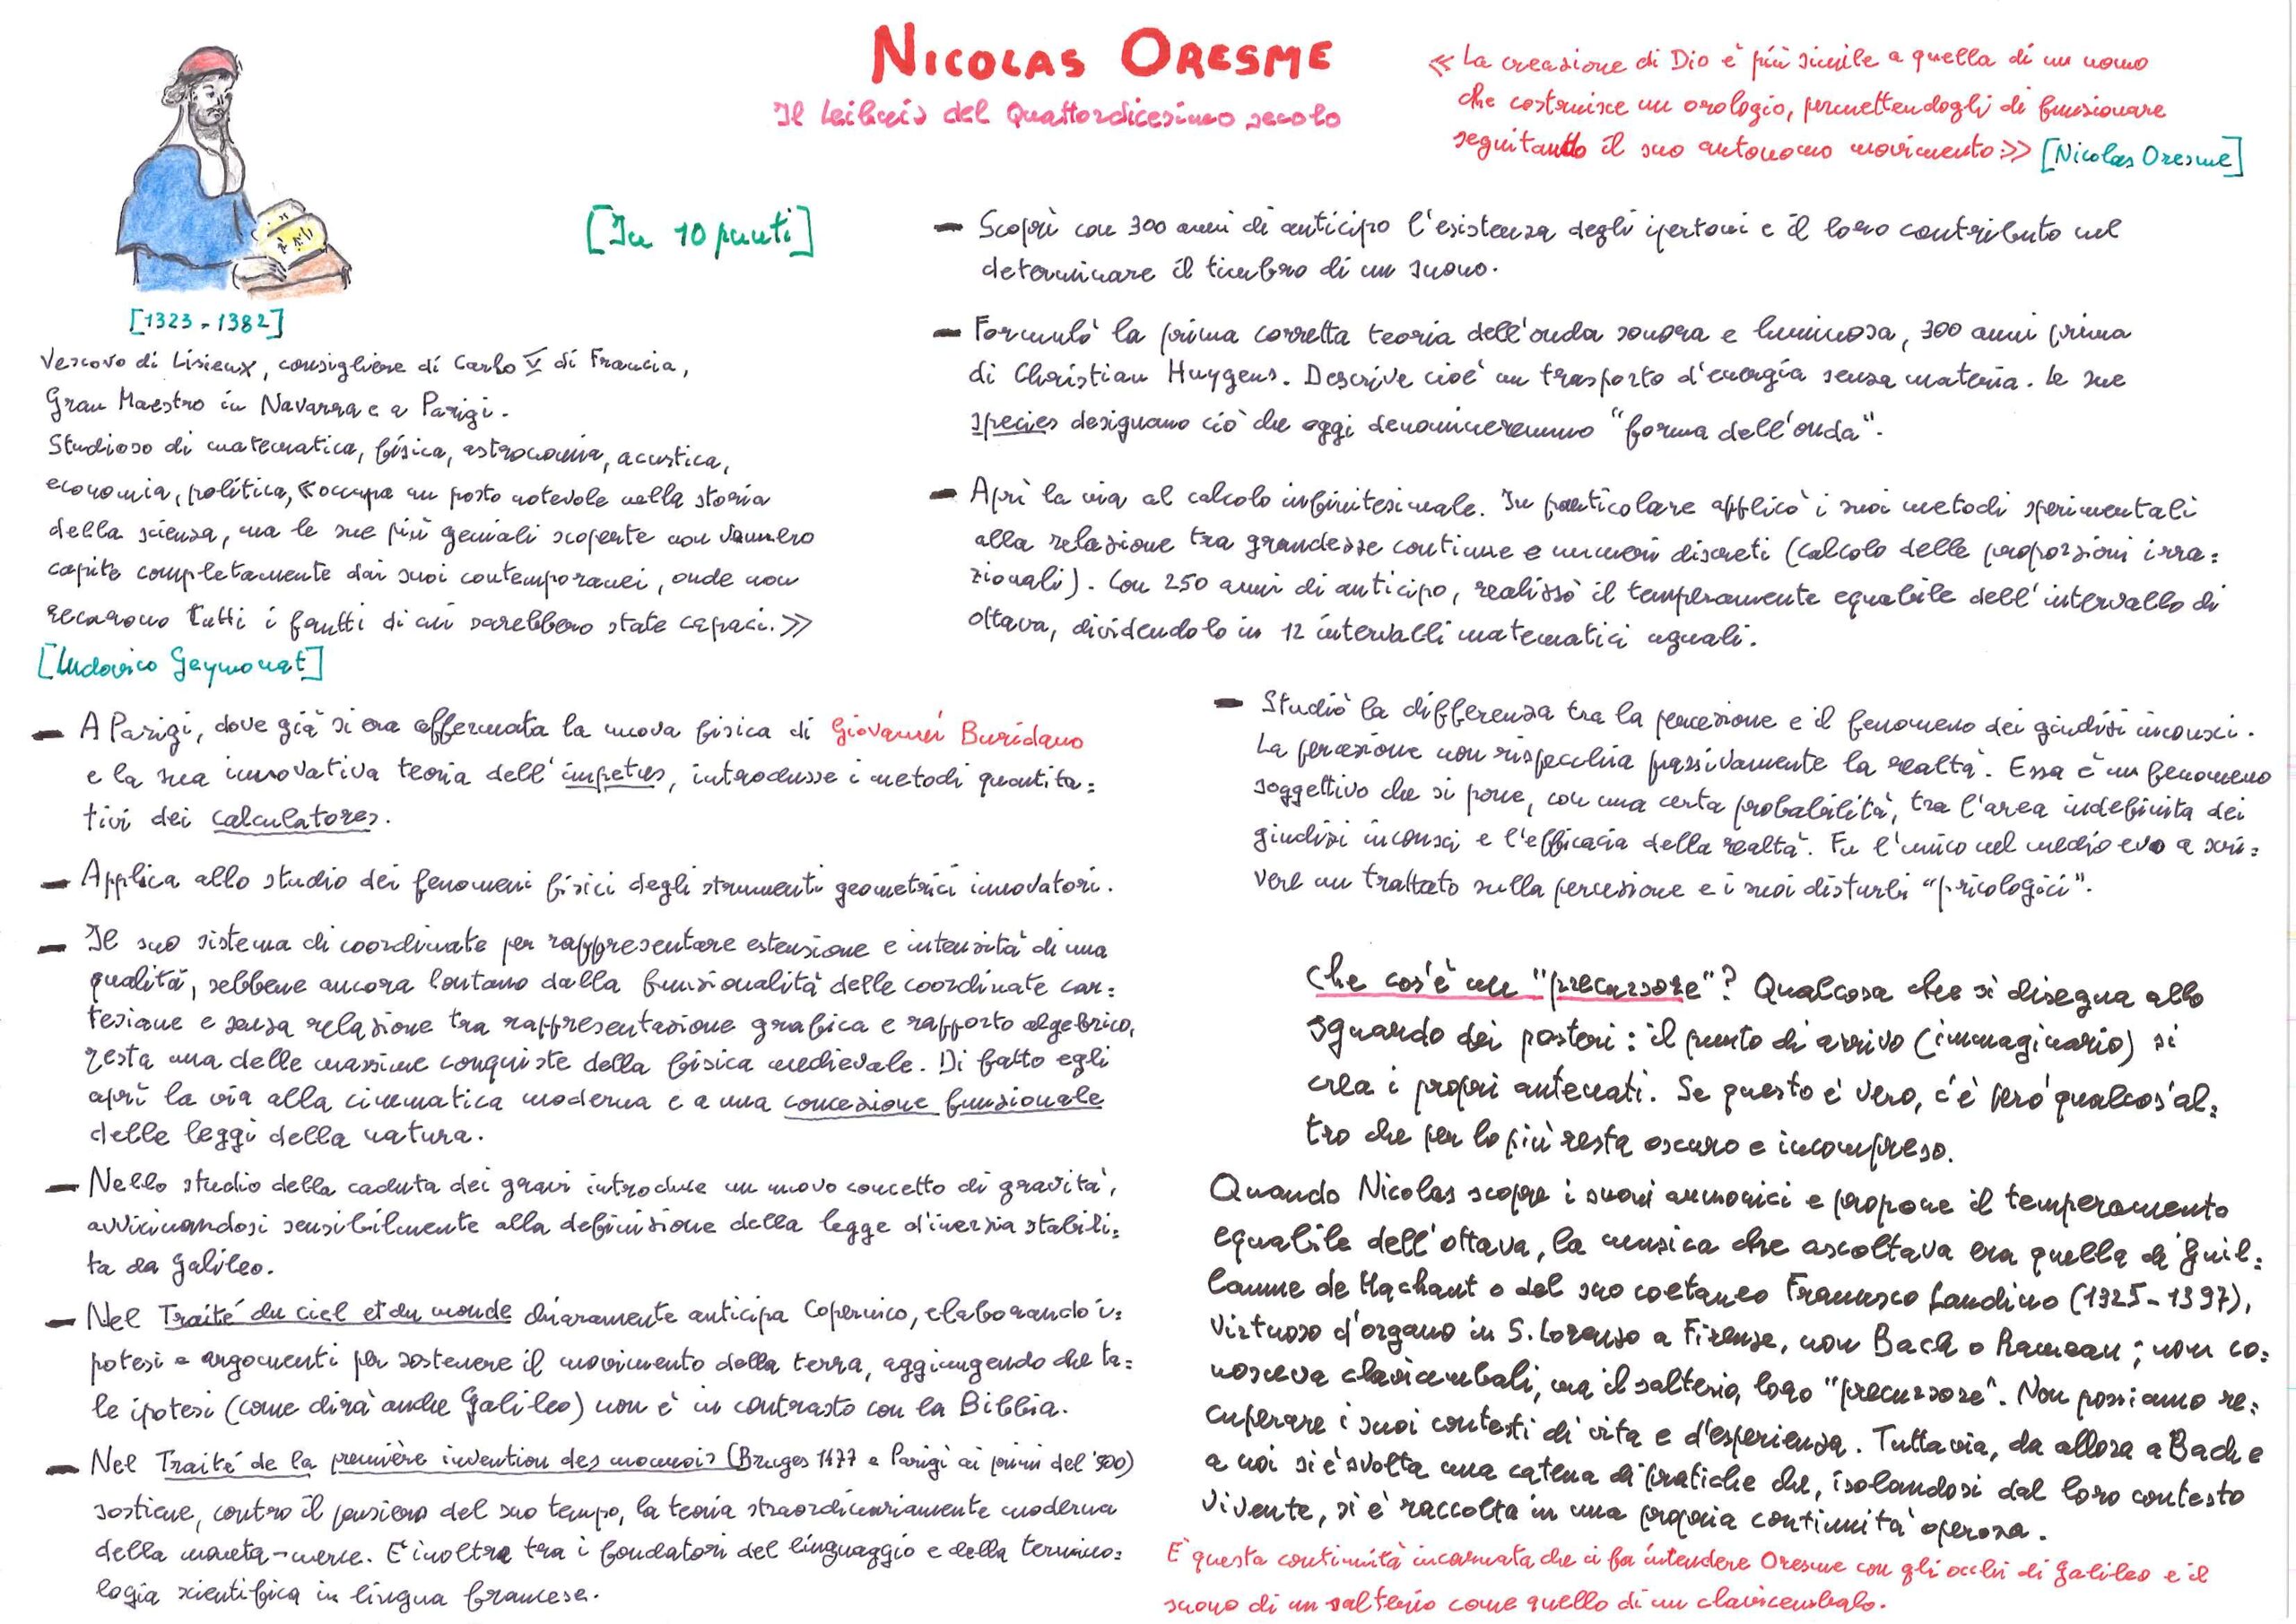 NICOLAS ORESME
Il Leibniz del Quattordicesimo secolo
« La creazione di Dio è più simile a quella di un uomo
che costruisce un orologio, permettendogli di funzionare
seguitando il suo autonomo movimento.» [Nicolas Oresme]
[1323-1382]
Vescovo di Lisieux, consigliere di Carlo V di Francia,
Gran Maestro in Navarra e a Parigi.
Studioso di matematica, fisica, astronomia, acustica,
economia, politica, «occupa un posto notevole nella storia
della scienza, ma le sue più geniali scoperte non vennero
capite completamente dai suoi contemporanei, onde non
recarono tutti i frutti di cui sarebbero state capaci.»
[Ludovico Geymonat]
[In 10 punti]
- A Parigi, dove già si era affermata la nuova fisica di Giovanni Buridano
e la sua innovativa teoria dell'impetus, introdusse i metodi quantita=
tivi dei calculatores.
- Applica allo studio dei fenomeni fisici degli strumenti geometrici innovatori.
- Il suo sistema di coordinate per rappresentare estensione e intensità di una
qualità, sebbene ancora lontano dalla funzionalità delle coordinate car=
tesiane e senza relazione tra rappresentazione grafica e rapporto algebrico,
resta una delle massime conquiste della fisica medievale. Di fatto egli
aprì la via alla cinematica moderna e a una concezione funzionale
delle leggi della natura.
- Nello studio della caduta dei gravi introduce un nuovo concetto di gravità,
avvicinandosi sensibilmente alla definizione della legge d'inerzia stabili=
ta da Galileo.
- Nel Traité du ciel et du monde chiaramente anticipa Copernico, elaborando i=
potesi e argomenti per sostenere il movimento della terra, aggiungendo che ta=
le ipotesi (come dirà anche Galileo) non è in contrasto con la Bibbia.
- Nel Traité de la première invention des monnoies (Bruges 1477 e Parigi ai primi del '500)
sostiene, contro il pensiero del suo tempo, la teoria straordinariamente moderna
della moneta-merce. E' inoltre tra i fondatori del linguaggio e della termino=
logia scientifica in lingua francese.
- Scoprì con 300 anni di anticipo l'esistenza degli ipertoni e il loro contributo nel
determinare il timbro di un suono.
- Formulò la prima corretta teoria dell'onda sonora e luminosa, 300 anni prima
di Christian Huygens. Descrive cioè un trasporto d'energia senza materia. Le sue
species designano ciò che oggi denomineremmo "forma dell'onda".
- Aprì la via al calcolo infinitesimale. In particolare applicò i suoi metodi sperimentali
alla relazione tra grandezze continue e numeri discreti (calcolo delle proporzioni irra=
zionali). Con 250 anni di anticipo, realizzò il temperamento equabile dell'intervallo di
ottava, dividendolo in 12 intervalli matematici uguali.
- Studiò la differenza tra la percezione e il fenomeno dei giudizi inconsci.
La percezione non rispecchia passivamente la realtà. Essa è un fenomeno
soggettivo che si pone, con una certa probabilità, tra l'area indefinita dei
giudizi inconsci e l'efficacia della realtà. Fu l'unico nel medio evo a scri=
vere un trattato sulla percezione e i suoi disturbi "psicologici".
Che cos'è un "precursore"? Qualcosa che si disegna allo
sguardo dei posteri: il punto di arrivo (immaginario) si
crea i propri antenati. Se questo è vero, c'è però qualcos'al=
tro che per lo più resta oscuro e incompreso.
Quando Nicolas scopre i suoni armonici e propone il temperamento
equabile dell'ottava, la musica che ascoltava era quella di Guil=
laume de Machaut o del suo coetaneo Francesco Landino (1325-1397),
virtuoso d'organo in S. Lorenzo a Firenze, non Bach o Rameau; non co=
nosceva clavicembali, ma il salterio, loro "precursore". Non possiamo re=
cuperare i suoi contesti di vita e d'esperienza. Tuttavia, da allora a Bach e
a noi si è svolta una catena di pratiche che, isolandosi dal loro contesto
vivente, si è raccolta in una propria continuità operosa.
E' questa continuità incarnata che ci fa intendere Oresme con gli occhi di Galileo e il
suono di un salterio come quello di un clavicembalo.